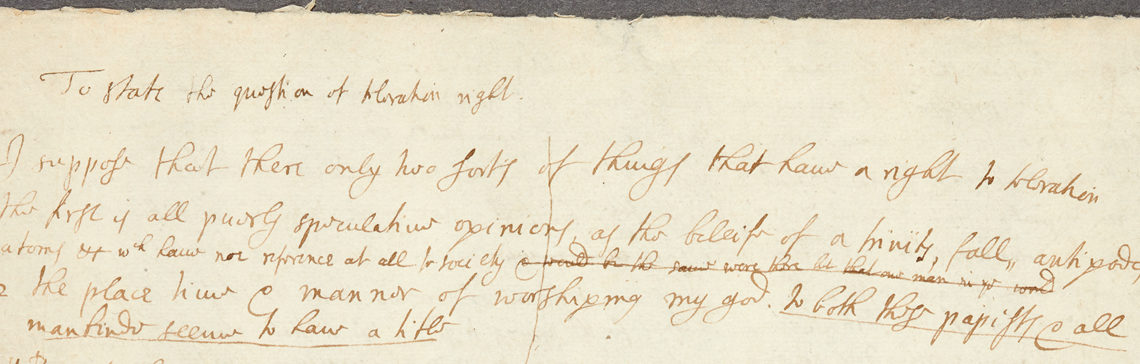 To state the question of toleration right.
I suppose that there only two sorts of things that have a right to toleration
the first is all purely speculative opinions, as the beleife of a trinity, fall, antipodes,
atoms &c wch have noe reference at all to society & would be the same were there but that one man in ye world
2 the place time & manner of worshiping my god. to both these papists & all
mankinde seeme to have a title